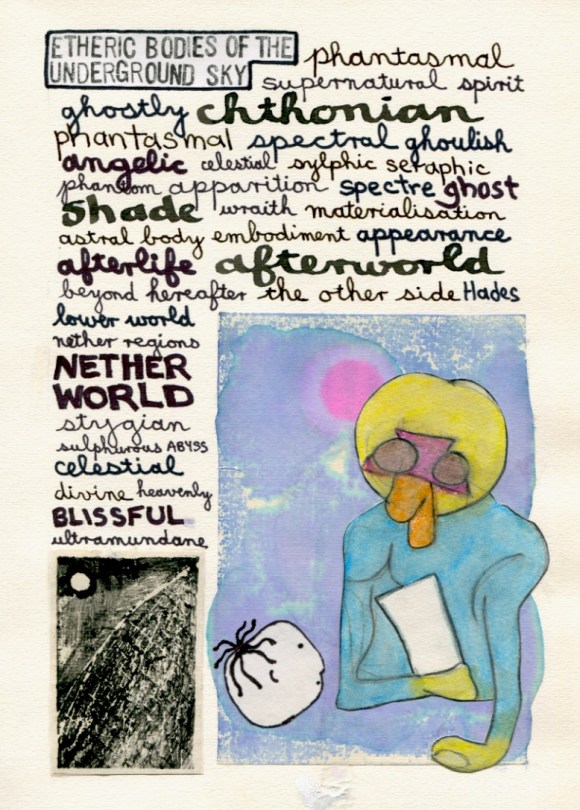 ETHERIC BODIES OF THE
UNDERGROUND SKY
phantasmal
supernatural spirit
ghostly chthonian
phantasmal spectral ghoulish
angelic celestial sylphic seraphic
phantom apparition spectre ghost
shade wraith materialisation
astral body embodiment appearance
afterlife afterworld
beyond hereafter the other side Hades
lower world
nether regions
NETHER
WORLD
stygian
sulphurous ABYSS
celestial
divine heavenly
BLISSFUL
ultramundane